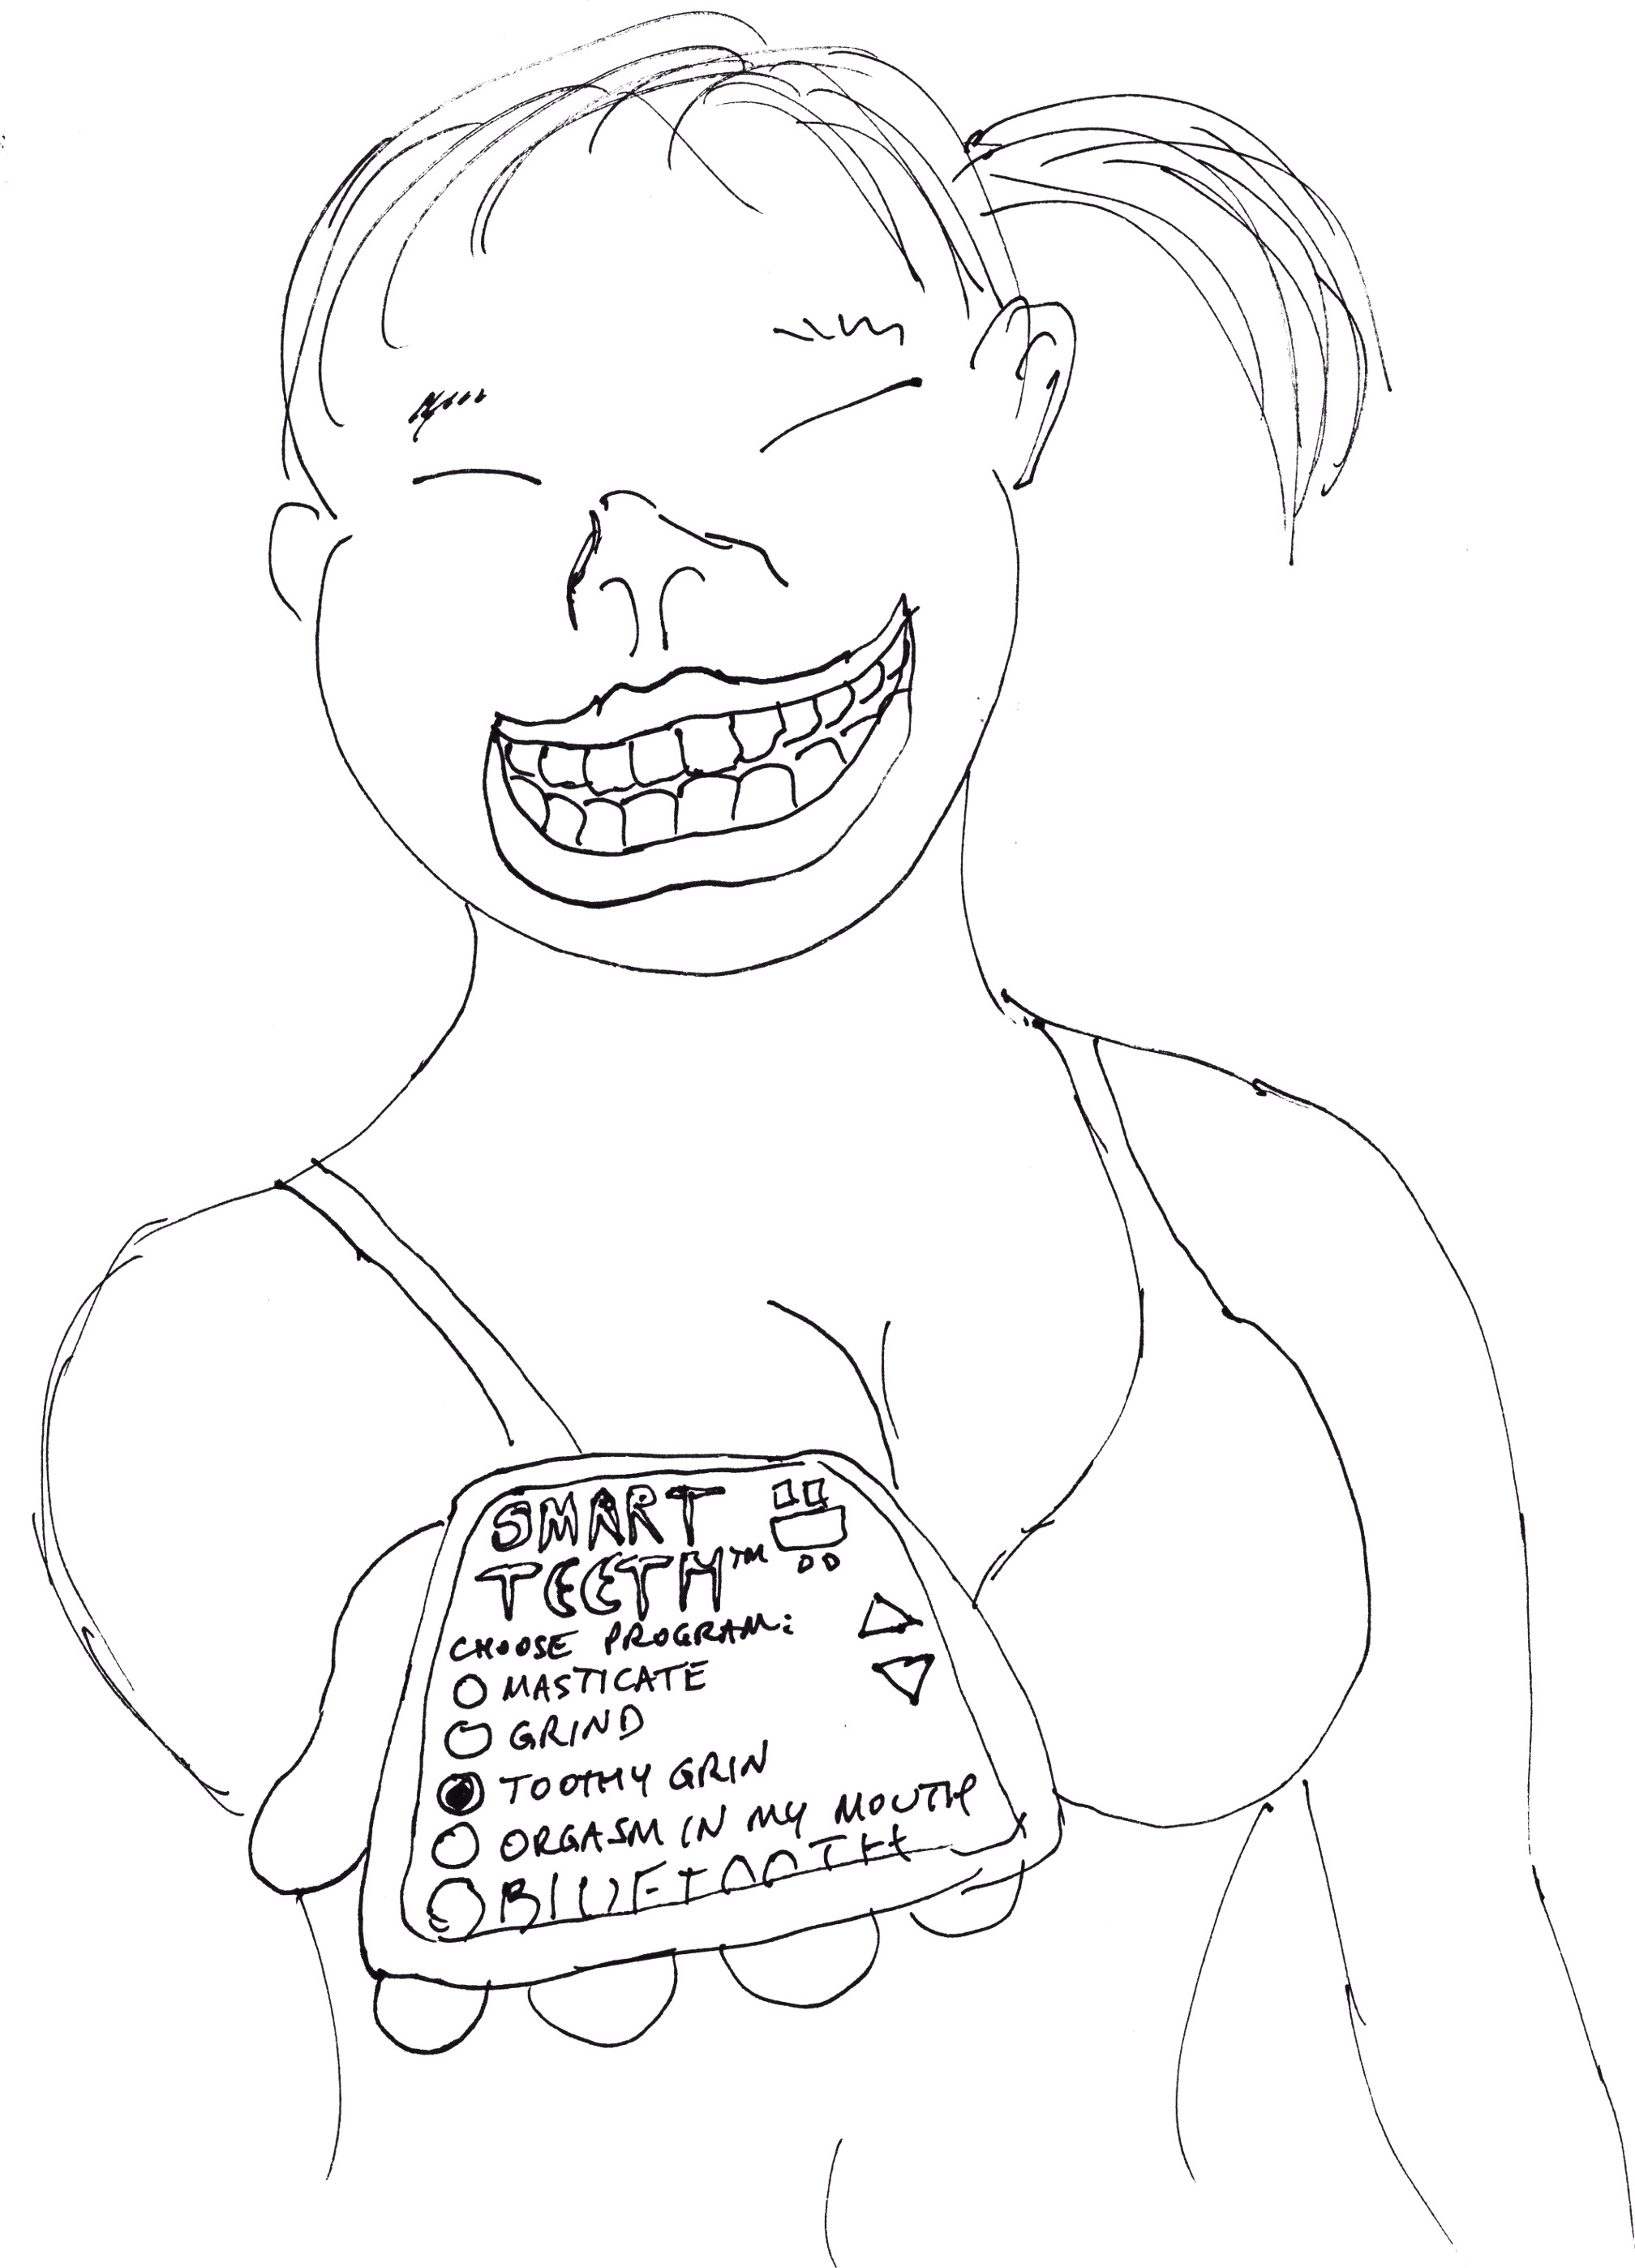 SMART
TEETH™
CHOOSE PROGRAM:
MASTICATE
GRIND
TOOTHY GRIN
ORGASM IN MY MOUTH
BLUETOOTH